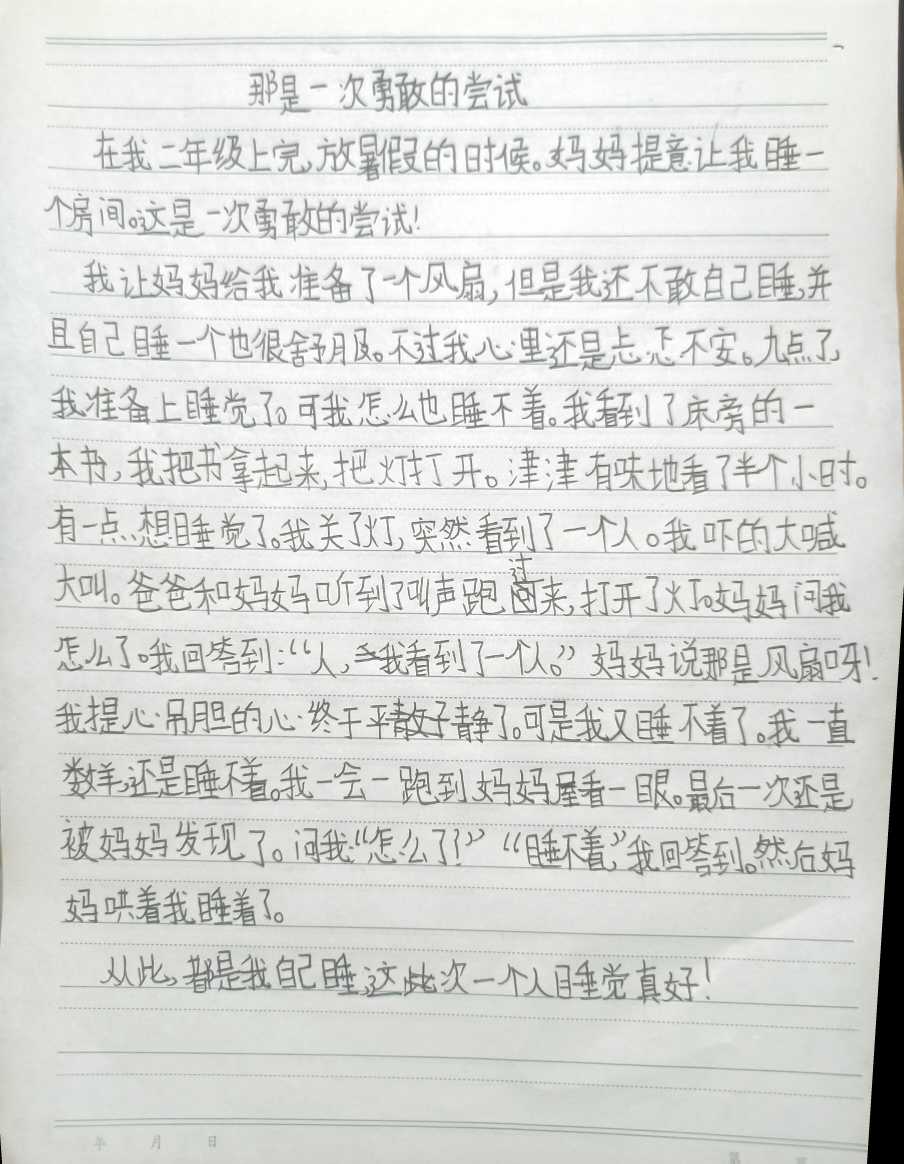 那是一次勇敢的尝试
在我二年级上完,放暑假的时候。妈妈提意让我睡一
个房间。这是一次勇敢的尝试!
我让妈妈给我准备了一个风扇,但是我还不敢自己睡,并
且自己睡一个也很舒服。不过我心里还是忐忑不安。九点了,
我准备上睡觉了。可我怎么也睡不着。我看到了床旁的一
本书,我把书拿起来,把灯打开。津津有味地看了半个小时。
有一点想睡觉了。我关了灯,突然看到了一个人。我吓的大喊
大叫。爸爸和妈妈听到了叫声跑过来,打开了灯。妈妈问我
怎么了。我回答到:“人,我看到了一个人。”妈妈说那是风扇呀!
我提心吊胆的心终于平静了。可是我又睡不着了。我一直
数羊,还是睡不着。我一会一跑到妈妈屋看一眼。最后一次还是
被妈妈发现了。问我:“怎么了?”“睡不着,”我回答到。然后妈
妈哄着我睡着了。
从此,都是我自己睡,这次一个人睡觉真好!
年 月 日
第 页